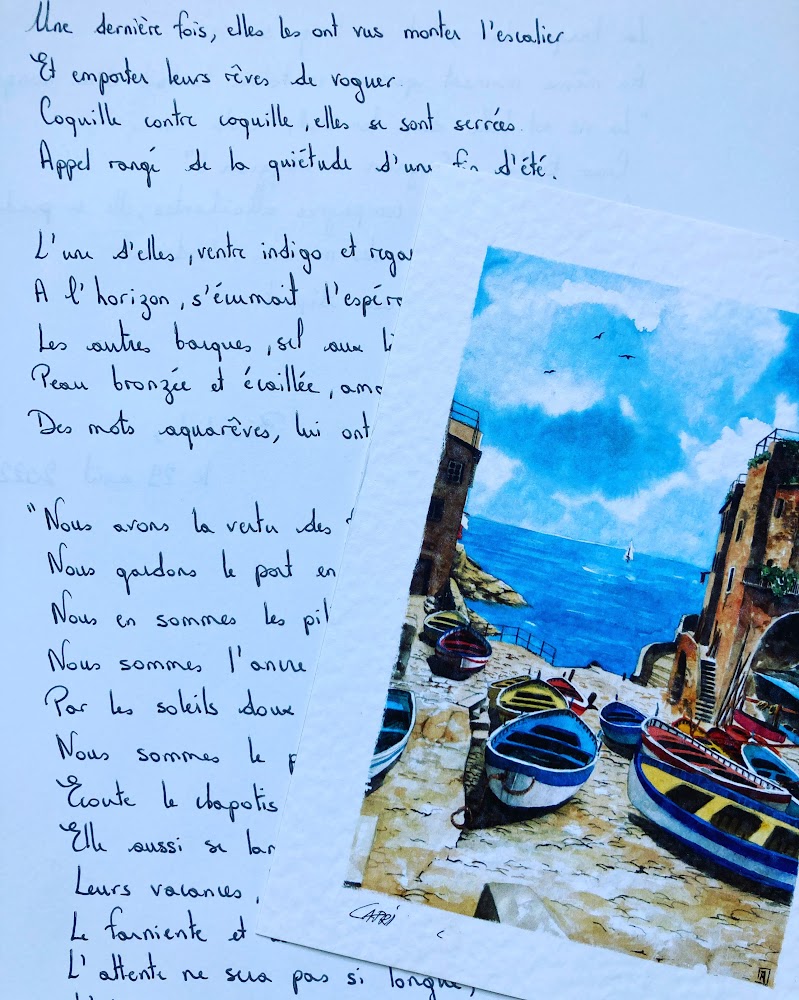 Une dernière fois, elles les ont vus monter l'escalier
Et emporter leurs rêves de voguer.
Coquille contre coquille, elles se sont serrées.
Appel rangé de la quiétude d'une fin d'été.
L'une d'elles, ventre indigo et
A l'horizon, s'écumait
Les autres barques, sel aux
Peau bronzée et écaillée,
Des mots aquarêves, lui ont
"Nous avons la vertu des
Nous gardons le port en
Nous en sommes les
Nous sommes l'ancre
Par les soleils doux
Nous sommes le
Ecoute le clapotis
Elle aussi se
Leurs vacances,
Le farniente et
L'attente ne sera pas si longue,
CAPRI